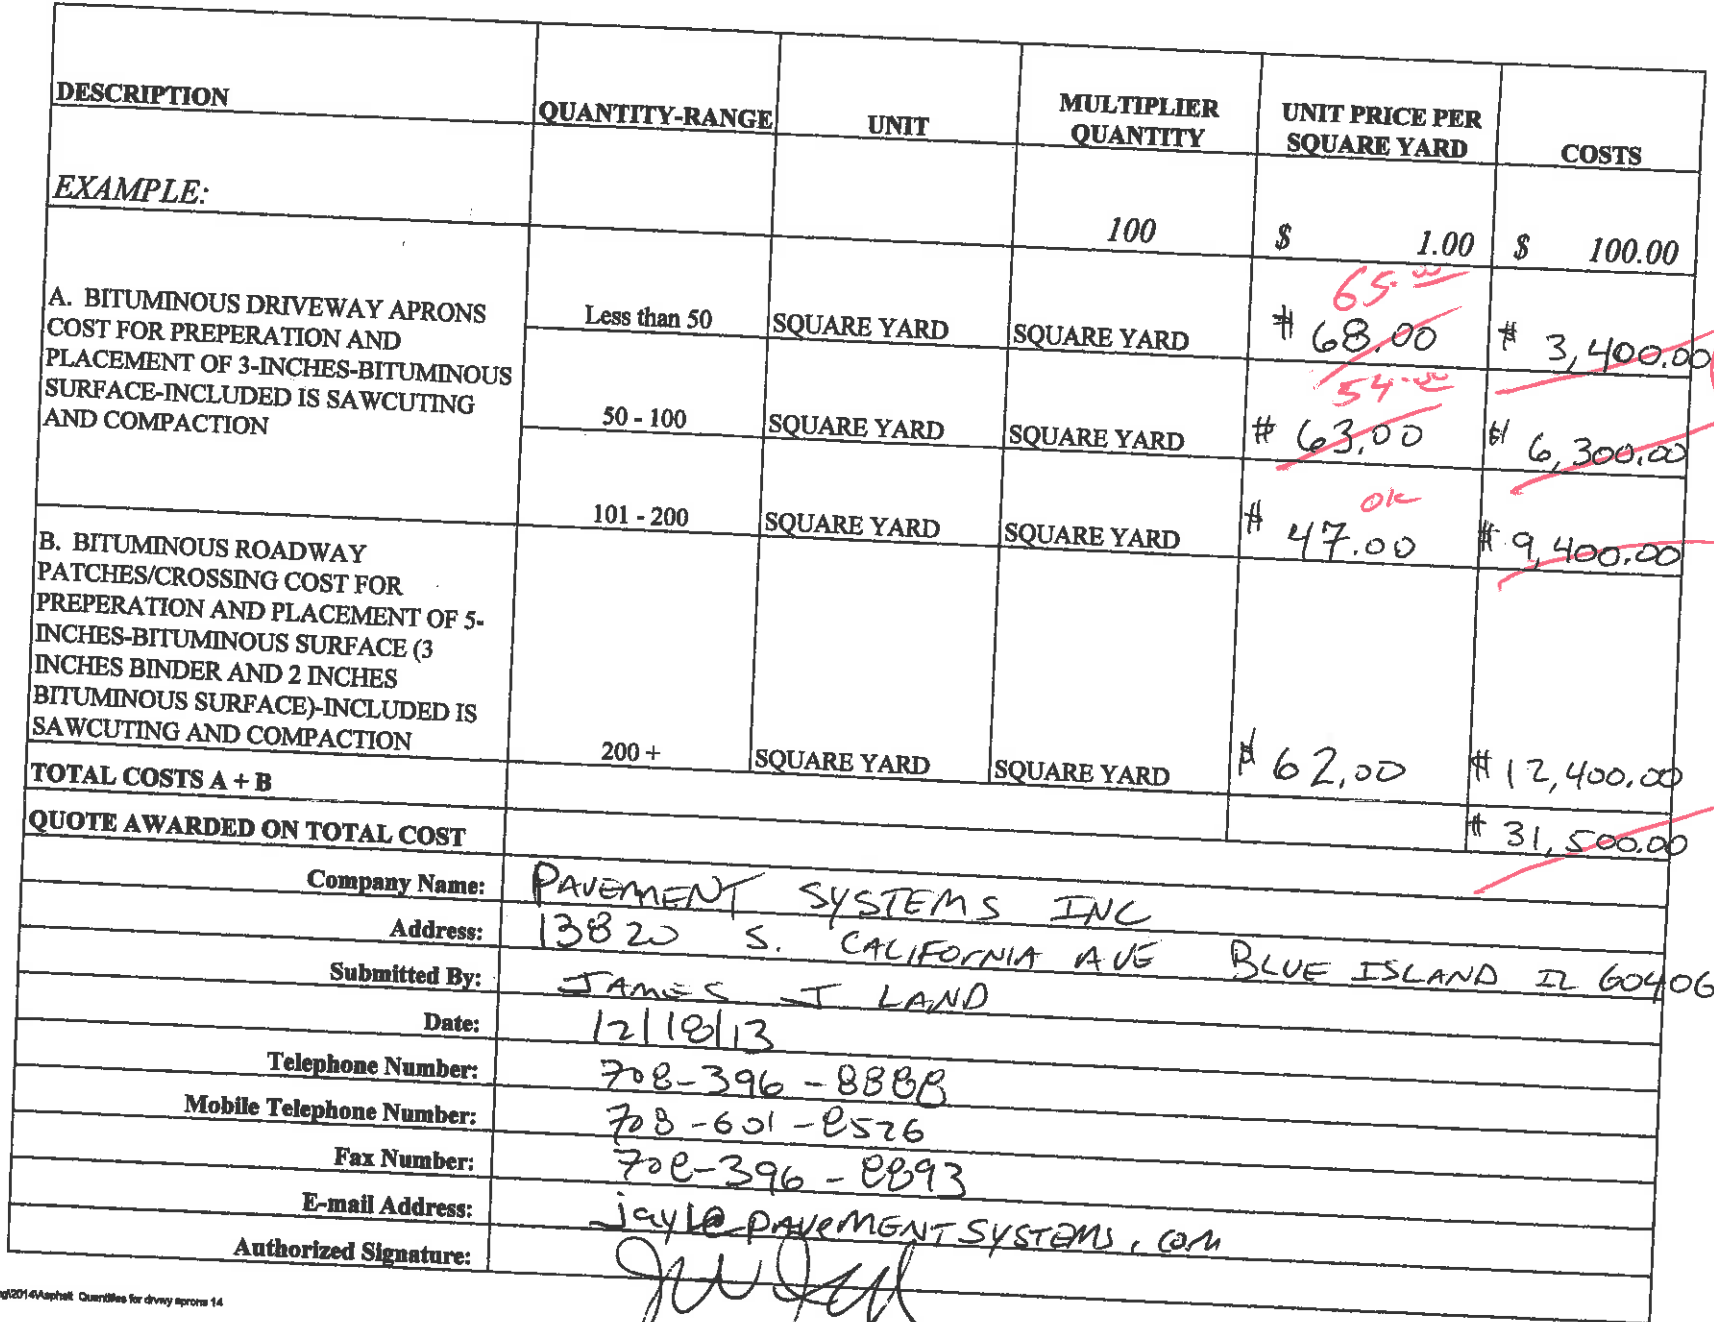 DESCRIPTION QUANTITY-RANGE UNIT MULTIPLIER QUANTITY UNIT PRICE PER SQUARE YARD COSTS
EXAMPLE: 100 $ 1.00 $ 100.00
A. BITUMINOUS DRIVEWAY APRONS
COST FOR PREPERATION AND
PLACEMENT OF 3-INCHES-BITUMINOUS
SURFACE-INCLUDED IS SAWCUTING
AND COMPACTION
65.00
Less than 50 SQUARE YARD SQUARE YARD $ 68.00 $ 3,400.00
54.00
50 - 100 SQUARE YARD SQUARE YARD $ 63.00 $ 6,300.00
ok
101 - 200 SQUARE YARD SQUARE YARD $ 47.00 $ 9,400.00
B. BITUMINOUS ROADWAY
PATCHES/CROSSING COST FOR
PREPERATION AND PLACEMENT OF 5-
INCHES-BITUMINOUS SURFACE (3
INCHES BINDER AND 2 INCHES
BITUMINOUS SURFACE)-INCLUDED IS
SAWCUTING AND COMPACTION
200 + SQUARE YARD SQUARE YARD $ 62.00 $ 12,400.00
TOTAL COSTS A + B $ 31,500.00
QUOTE AWARDED ON TOTAL COST
Company Name: PAVEMENT SYSTEMS INC
Address: 13820 S. CALIFORNIA AVE BLUE ISLAND IL 60406
Submitted By: JAMES J LAND
Date: 12/18/13
Telephone Number: 708-396-8888
Mobile Telephone Number: 708-601-8526
Fax Number: 708-396-8893
E-mail Address: jayl@PAVEMENTSYSTEMS.COM
Authorized Signature:
2014\Asphalt Quantities for drvwy aprons 14